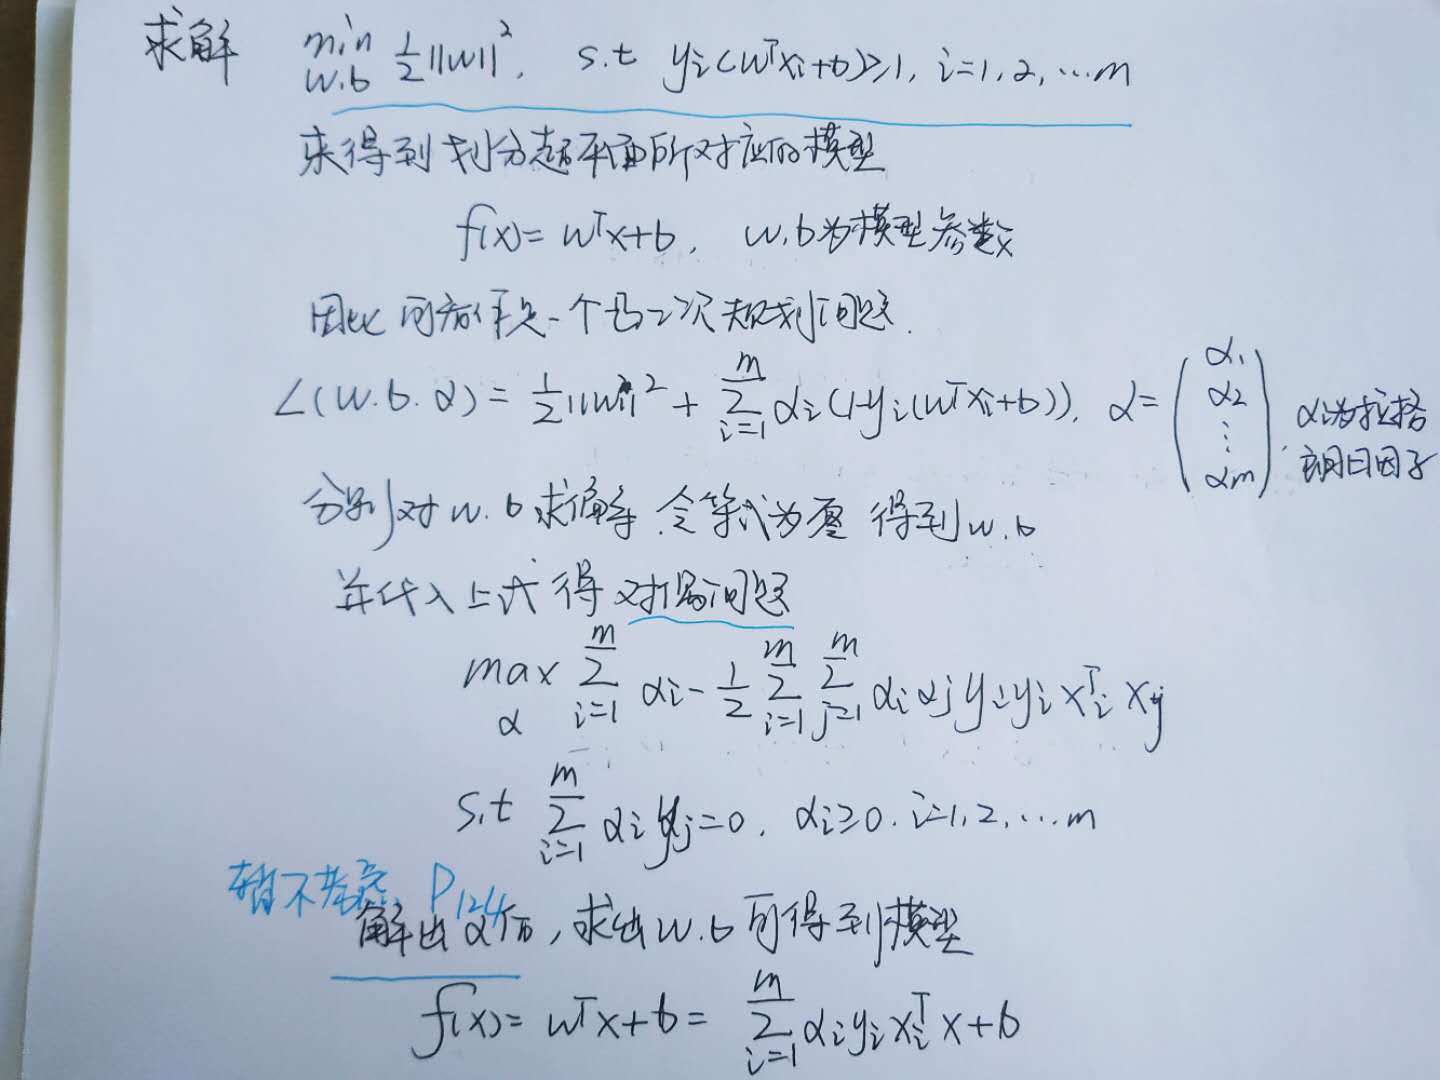 求解 min w.b ½||w||², s.t yi(wᵀxi+b)≥1, i=1,2,…m
来得到划分超平面所对应的模型
f(x)= wᵀx+b, w.b为模型参数
因此可看作是一个凸二次规划问题.
L(w.b.α)= ½||w||² + Σ_{i=1}^{m} αi(1-yi(wᵀxi+b)). α= (α1 α2 ⋮ αm) αi为拉格
朗日因子
分别对w.b求偏导.令等式为零 得到w.b
并代入上式得 对偶问题
max α Σ_{i=1}^{m} αi - ½ Σ_{i=1}^{m} Σ_{j=1}^{m} αiαjyiyixiᵀxj
s.t Σ_{i=1}^{m} αiyj=0. αi≥0. i=1,2,…m
暂不考虑. P124
解出α后,求出w.b可得到模型
f(x)= wᵀx+b= Σ_{i=1}^{m} αiyixiᵀx+b